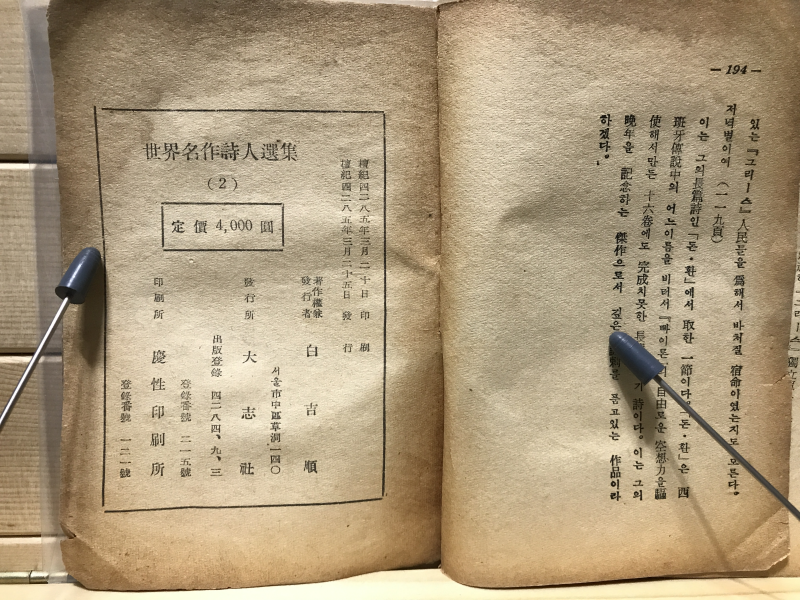 — 194 —
있는 『그리ー스』 人民들을 爲해서 바처질 宿命이였는지도 모른다。
저녁별이여 (一一九頁)
이는 그의 長篇詩인 「돈・환」에서 取한 一節이다。「돈・환」은 西
班牙傳說中의 어느 이름을 비더서 『빠이론』의 自由로운 空想力을 驅
使해서 만든 十六卷에도 完成치 못한 長 詩이다。이는 그의
晩年을 記念하는 傑作으로서 깊은 품고있는 作品이라
하겠다。
世界名作詩人選集
(2)
定價 4,000 圓
檀紀四二八五年三月二十日 印刷
檀紀四二八五年三月二十五日 發行
著作權兼
發行者 白吉順
서울市中區草洞一四〇
發行所 大志社
出版登錄 四二八四、九、三
登錄番號 二一五號
印刷所 慶性印刷所
登錄番號 一二一號